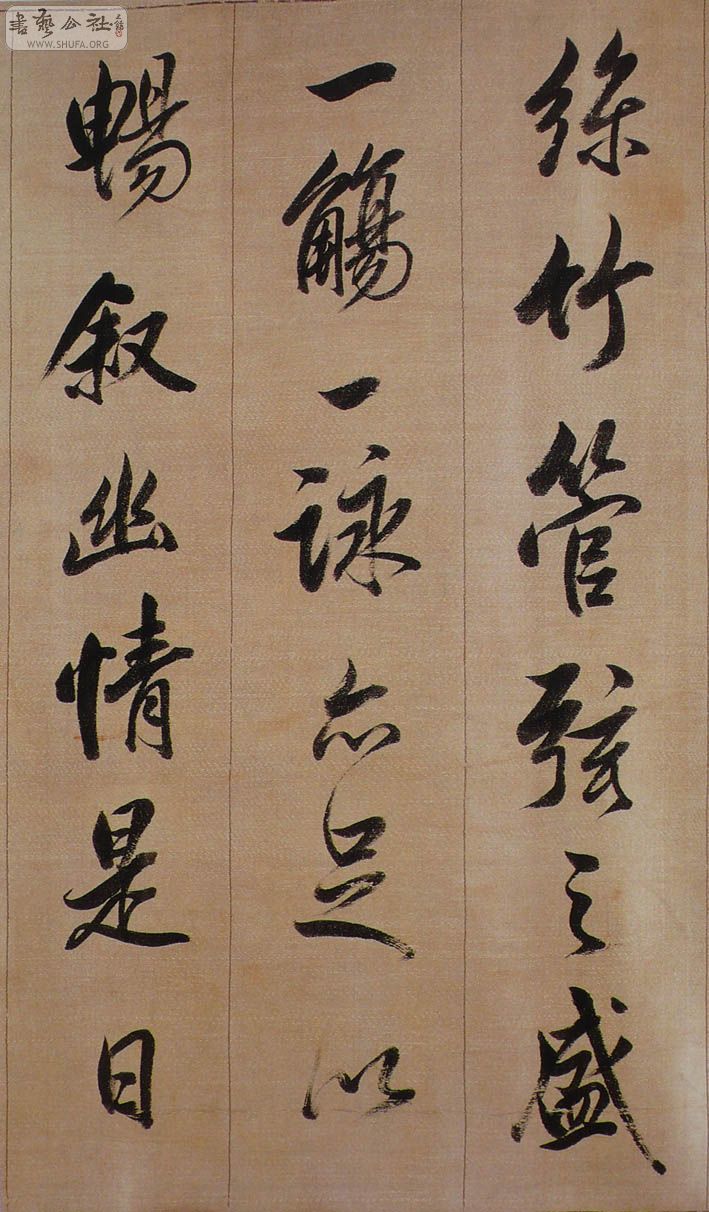 絲竹管弦之盛
一觴一詠亦足以
暢叙幽情是日
書藝公社
WWW.SHUFA.ORG